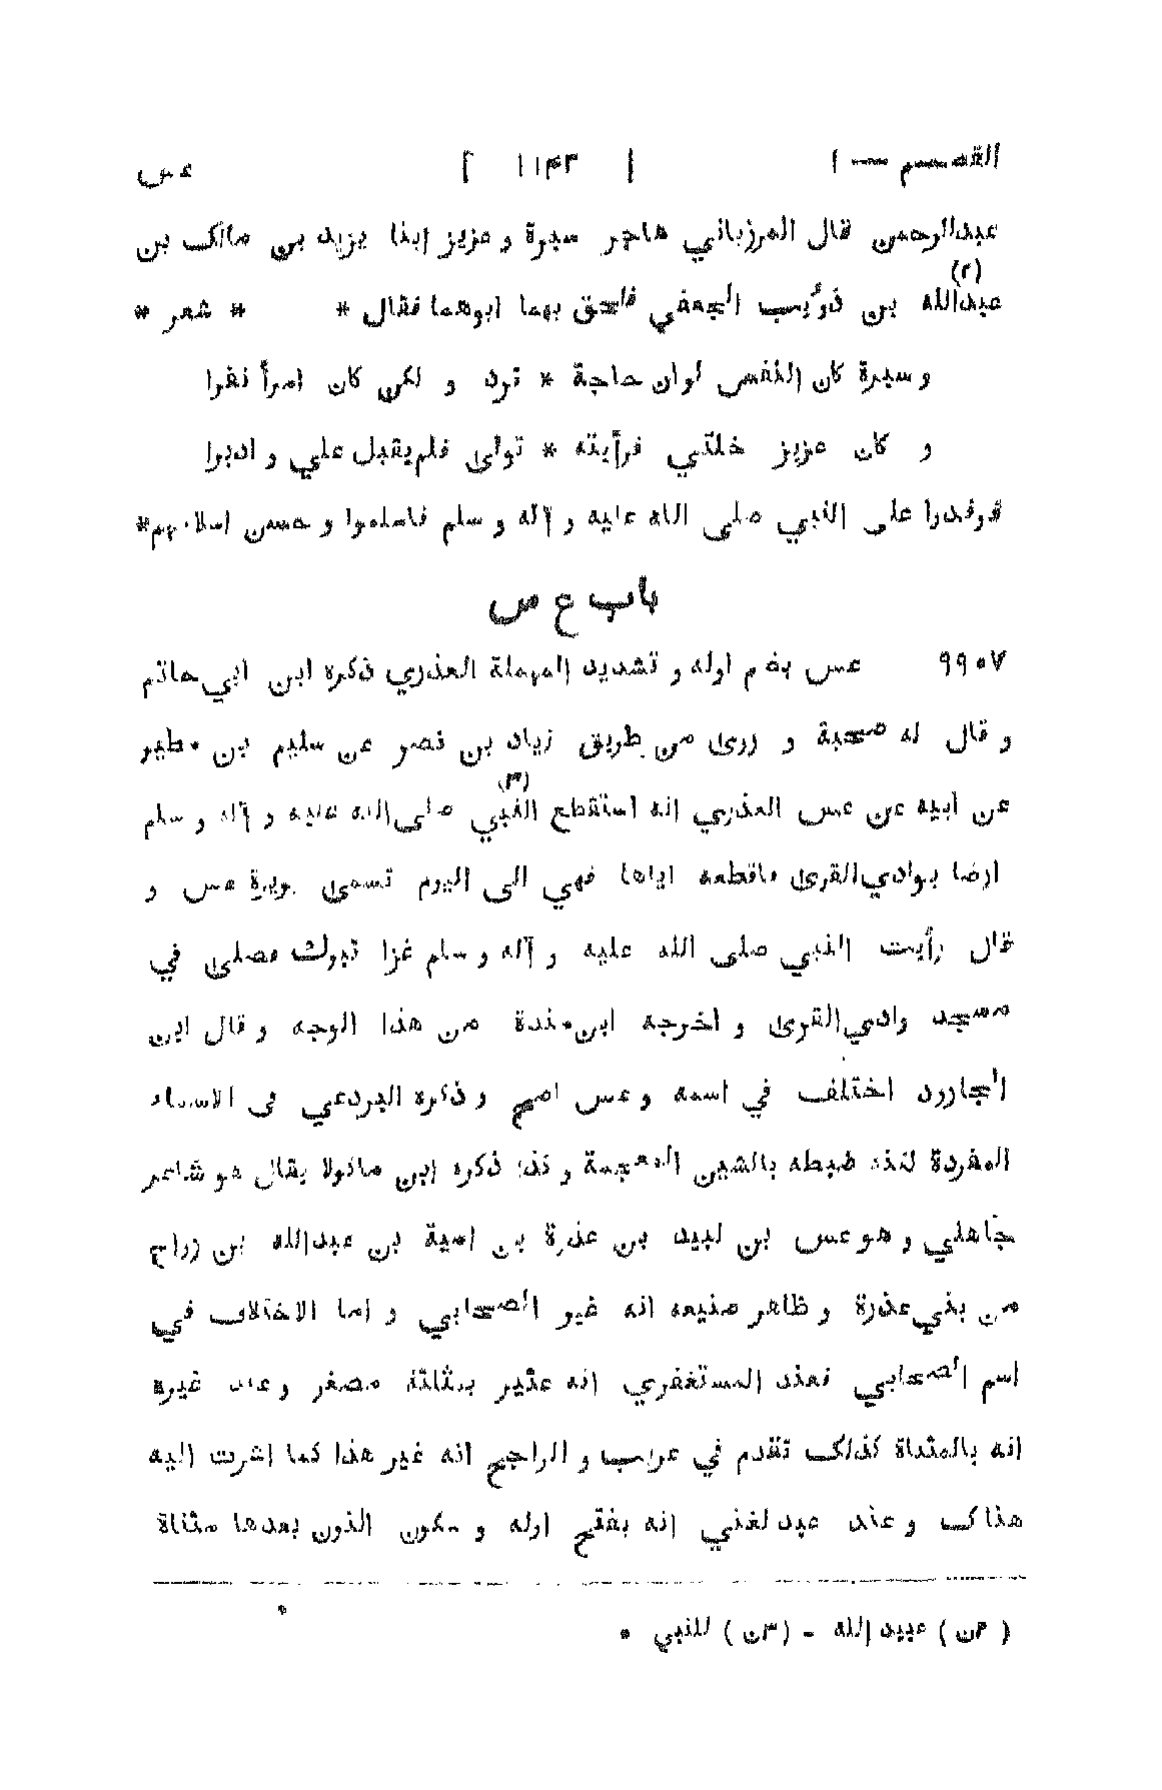 القسم — ١ [ ١١٤٣ ] ع س
عبدالرحمن قال المرزباني هاجر سبرة و عزيز ابنا يزيد بن مالك بن
(٢)
عبدالله بن ذؤيب الجعفي فلحق بهما ابوهما فقال * * شعر *
و سبرة كان النفس لوان حاجة * ترد و لكن كان امرأ نفرا
و كان عزيز خلتي فرأيته * تولى فلم يقبل علي و ادبرا
فوفدوا على النبي صلى الله عليه و آله و سلم فاسلموا و حسن اسلامهم*
باب ع س
٩٩٠٧ عس بضم اوله و تشديد المهملة العذري ذكره ابن ابي حاتم
و قال له صحبة و روى من طريق زياد بن نصر عن سليم بن مطير
(٣)
عن ابيه عن عس العذري انه استقطع النبي صلى الله عليه و آله و سلم
ارضا بوادي القرى فاقطعه اياها فهي الى اليوم تسمى بويرة عس و
قال رأيت النبي صلى الله عليه و آله و سلم غزا تبوك فصلى في
مسجد وادي القرى و اخرجه ابن مندة من هذا الوجه و قال ابن
الجارود اختلف في اسمه و عس اصح و ذكره البردعي في الاسماء
المفردة لكنه ضبطه بالشين المعجمة و كذا ذكره ابن ماكولا يقال هو شاعر
جاهلي و هو عس بن لبيد بن عذرة بن امية بن عبدالله بن رزاح
من بني عذرة و ظاهر صنيعه انه غير الصحابي و اما الاختلاف في
اسم الصحابي فعند المستغفري انه عثير بمثلثة مصغر و عند غيره
انه بالمثناة كذلك تقدم في عرب و الراجح انه غير هذا كما اشرت اليه
هناك و عند عبد لغني انه بفتح اوله و سكون النون بعدها مثناة
( ٢ن ) عبيد الله - ( ٣ن ) للنبي *